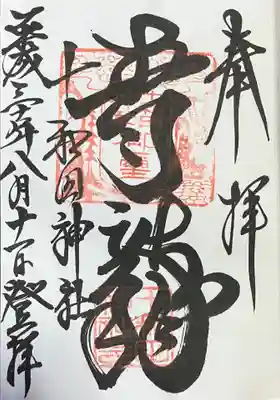 奉拝
青龍
十和田神社
平成三十年八月十一日登拝